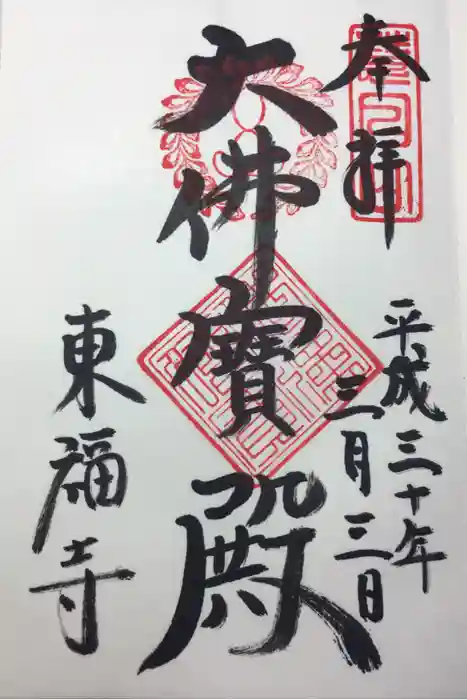 奉拝
平成三十年
三月三日
大佛寶殿
東福寺